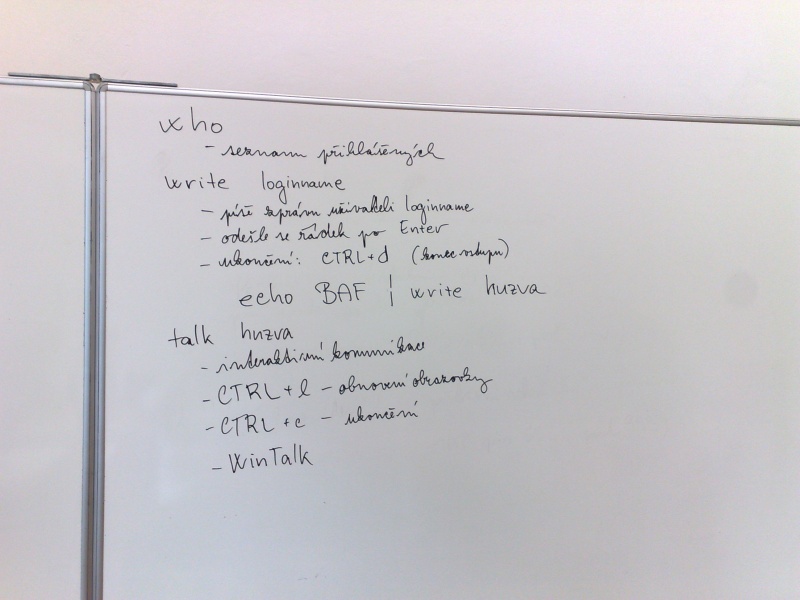 who
- seznam přihlášených
write loginname
- píše zprávu uživateli loginname
- odešle se řádek po Enter
- ukončení: CTRL+d (konec vstupu)
echo BAF | write huzva
talk huzva
- interaktivní komunikace
- CTRL+l - obnovení obrazovky
- CTRL+c - ukončení
- WinTalk